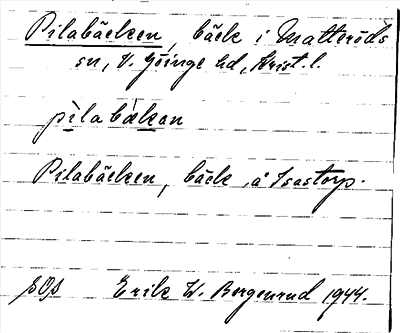 Pilabäcken, bäck i Matteröds
sn, V. Göinge hd, Krist. l.
pìlabä̀kan
Pilabäcken, bäck, å Isastorp.
SOS Erik W. Bergenrud 1944.